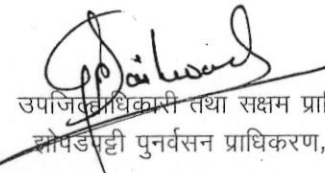 उपजिल्हाधिकारी तथा सक्षम प्राधि
झोपडपट्टी पुनर्वसन प्राधिकरण,